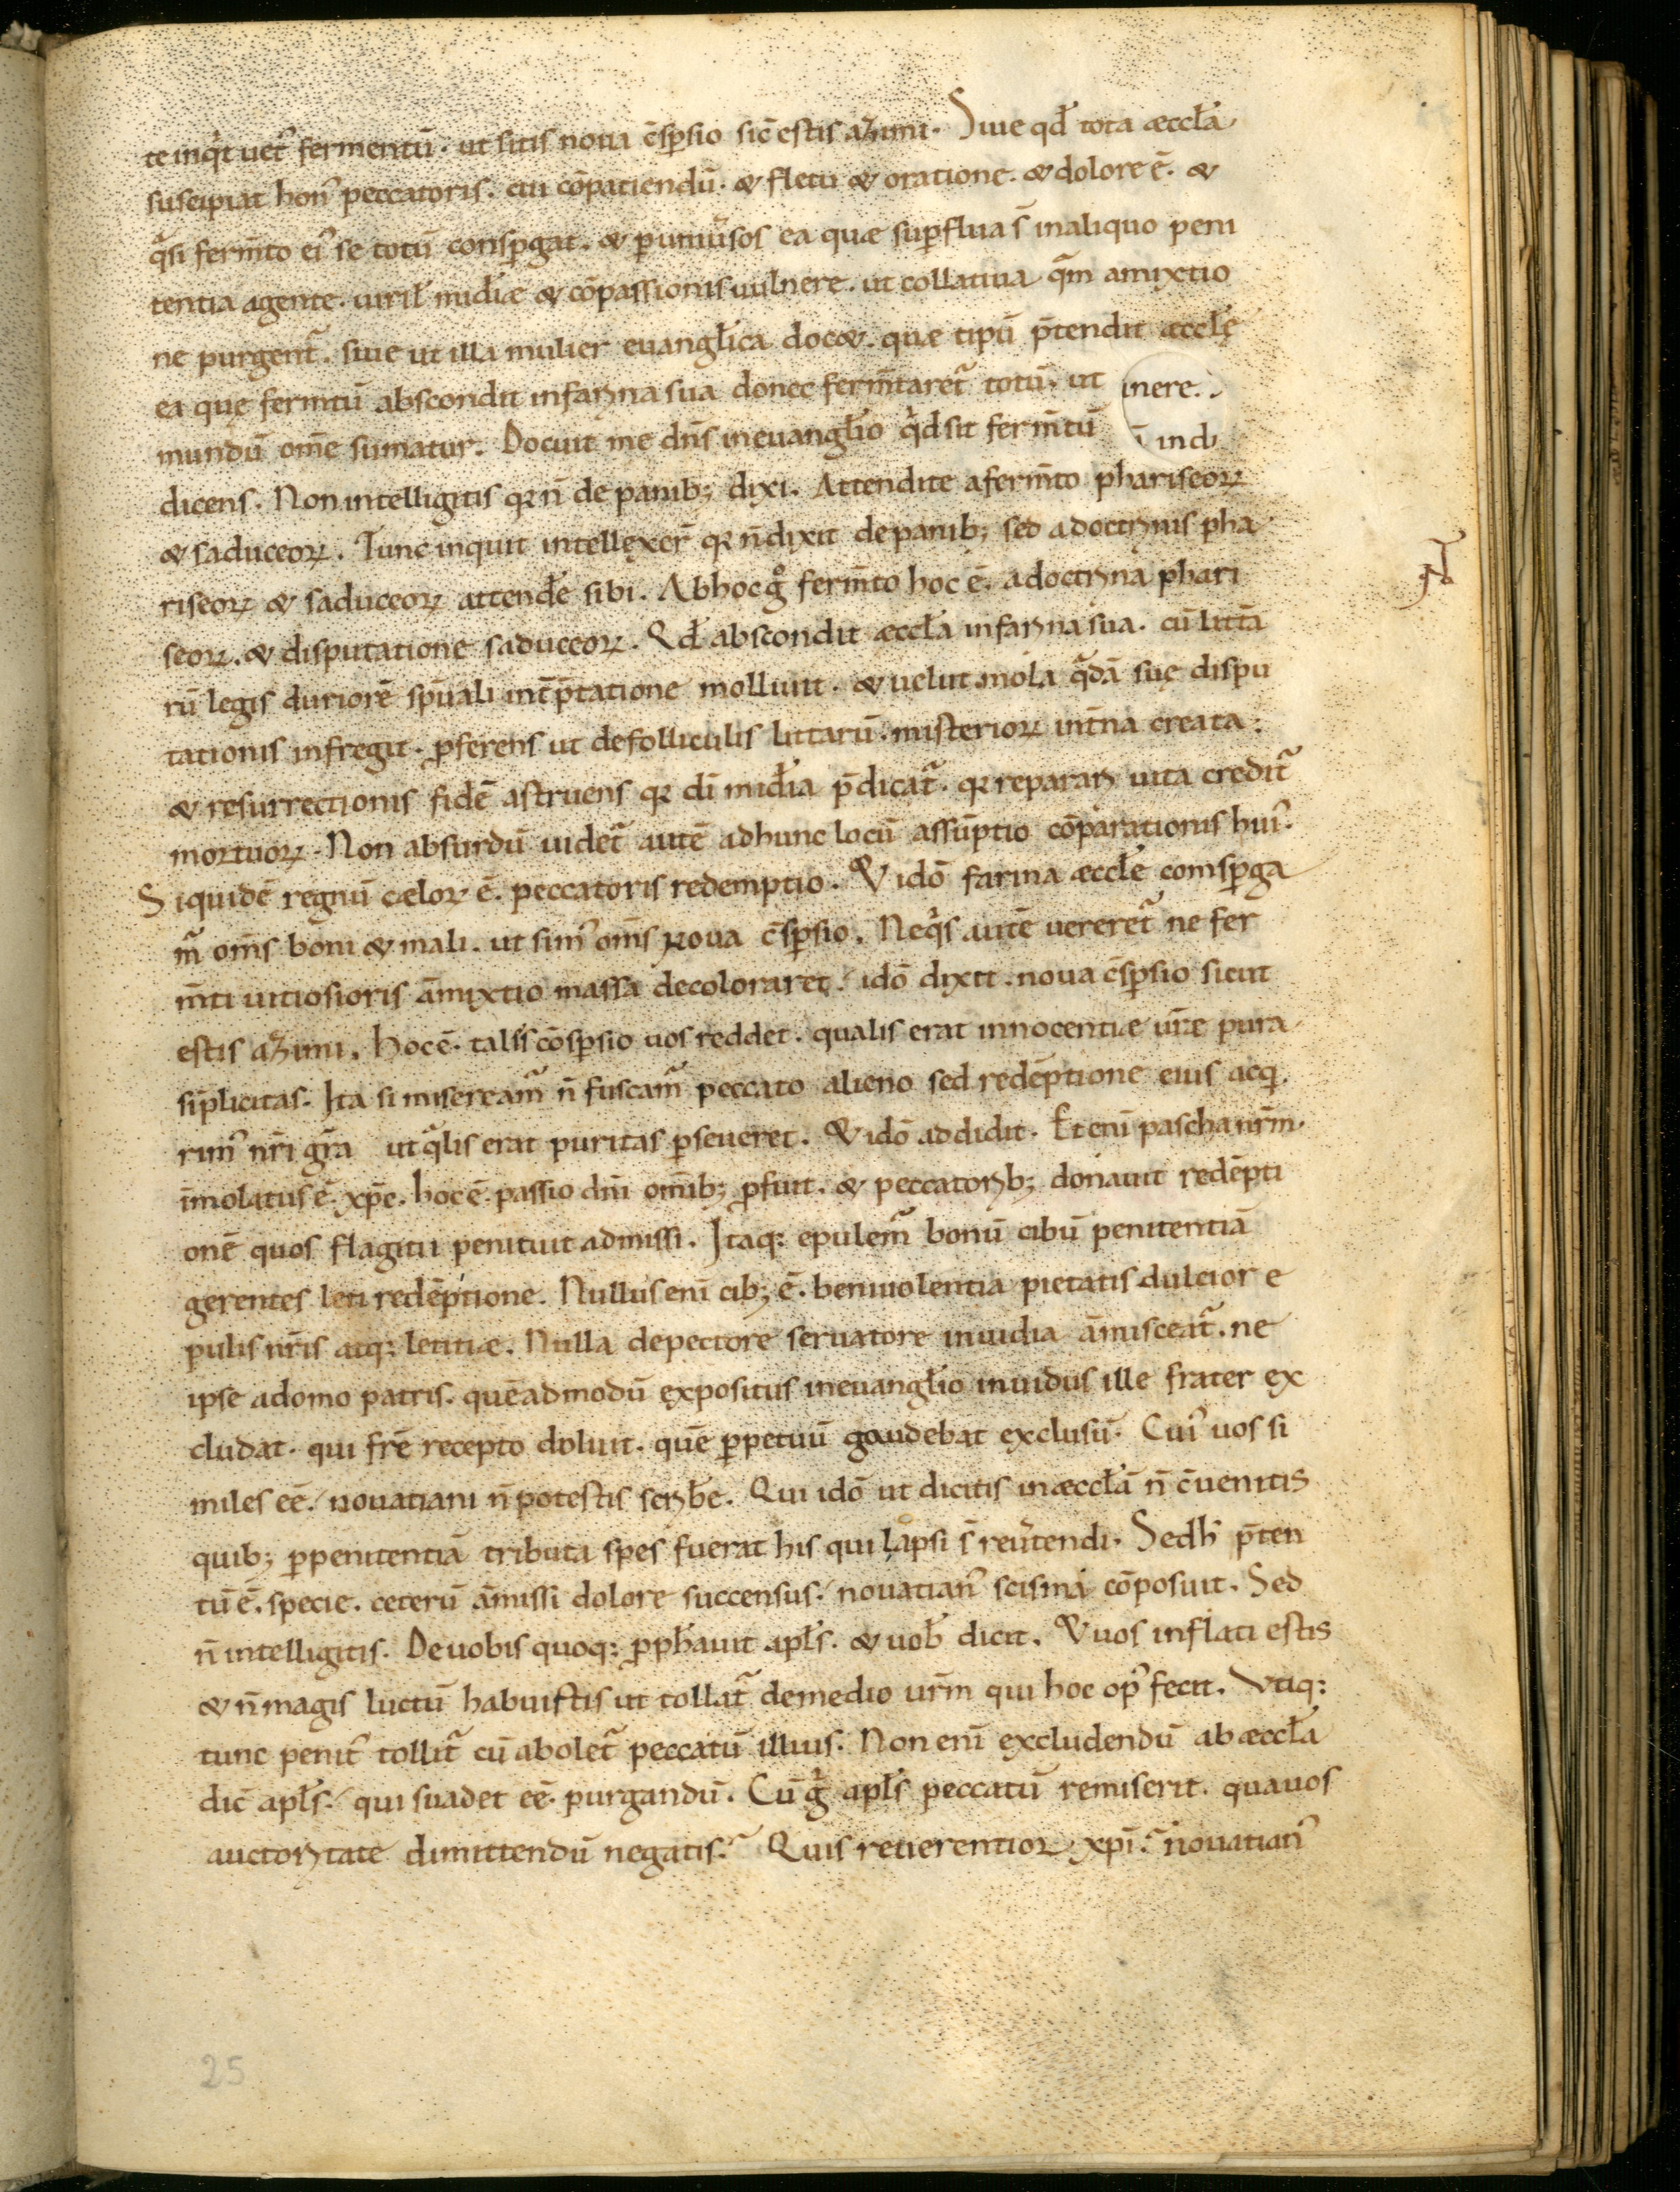 te inq̇t uet᷒ fermentū. ut sitis noua c̄sꝑsio sic̄ estis azimi. Siue qđ tota æccƚa
suscipiat hon᷒ peccatoris. cui cōpatiendū. & fletu & oratione. & dolore ē. &
qͣsi ferm̄to ei᷒ se totū consꝑgat. & ꝑ uniu̾sos ea quæ suꝑflua s̄ in aliquo peni
tentia agente. uiriƚ miđiæ & cōpassionis uulnere. ut collatiua qͣm amixtio
ne purgent᷑. siue ut illa mulier euangƚica doc&. quæ tipū p̄tendit æccƚę
ea quę ferm̄tū abscondit in farina sua donec ferm̄taret᷑ totū. ut
mundū om̄e sumatur. Docuit me dn̄s in euangƚio qͥd sit ferm̄tū
dicens. Non intelligitis qꝛ n̄ de panib; dixi. Attendite a ferm̄to phariseoꝝ
& saduceoꝝ. Tunc inquit intellexer̄ qꝛ n̄ dixit de panib; sed a doctrinis pha
riseoꝝ & saduceoꝝ attenđe sibi. Ab hoc gͦ ferm̄to hoc ē. a doctrina phari
seoꝝ. & disputatione saduceoꝝ. Qđ abscondit æccƚa in farina sua. cū litt̄a
rū legis duriorē sp̄uali int̄p̄tatione molliuit. & uelut mola qͣdā suę dispu
tationis infregit. ꝓferens ut de folliculis litt̄arū. misterioꝝ int̄na creata:
& resurrectionis fidē astruens qꝛ dī miđia p̄dicat᷑. qꝛ reparari uita credit᷑
mortuoꝝ. Non absurdū uidet᷑ autē ad hunc locū assūptio cōparationis hui᷒.
Siquidē regnū cæloꝝ ē. peccatoris redemptio. & idō farina æccƚe comsꝑga
m᷑ om̄s boni & mali. ut sim᷒ om̄s noua c̄sꝑsio. Ne qͥs autē uereret᷑ ne fer
m̄ti uitiosioris āmixtio massā decoloraret. idō dixit. noua c̄sꝑsio sicut
estis azimi. hoc ē. talis cōsꝑsio uos reddet. qualis erat innocentiæ ur̄æ pura
sīplicitas. Ita si misereām᷑ n̄ fuscam᷑ peccato alieno sed redēptione eius acq̇
rim᷒ nr̄i gr̄a ut qͣlis erat puritas ꝑseueret. & idō addidit. Et enī pascha nr̄m.
īmolatus ē. xp̄c. hoc ē. passio dn̄i om̄ib; ꝓfuit. & peccatorib; donauit redēpti
onē quos flagitii penituit admissi. Itaq: epulem᷑ bonū cibū penitentiā
gerentes leti redēptione. Nullus enī cib; ē. beniuolentia pietatis dulcior e
pulis nr̄is atq: letitiæ. Nulla de pectore seruatore inuidia āmisceat᷑. ne
ipse a domo patris. quēadmodū expositus in euangƚio inuidus ille frater ex
cludat. qui fr̄e recepto doluit. quē ꝑpetuū gaudebat exclusū. Cui᷒ uos si
miles eē. nouatiani n̄ potestis scriƀe. Qui idō ut dicitis in æccƚā n̄ c̄uenitis
quib; ꝑ penitentiā tributa spes fuerat his qui lapsi s̄ reu̾tendi. Sed h̄ p̄ten
tū ē. specie. ceterū āmissi dolore succensus. nouatian᷒ scisma cōposuit. Sed
n̄ intelligitis. De uobis quoq: ꝓpħauit apƚs. & uoƀ dicit. & uos inflati estis
& n̄ magis luctū habuistis ut tollat᷑ de medio ur̄m qui hoc op᷒ fecit. Vtiq:
tunc penit᷒ tollit᷑ cū abolet᷑ peccatū illius. Non enī excludendū ab æccƚa
dic̄ apƚs. qui suadet eē. purgandū. Cū gͥ apƚs peccatū remiserit. qua uos
auctoritate dimittendū negatis. Quis reuerentior xp̄i. nouatian᷒
inere.
ī indi
25